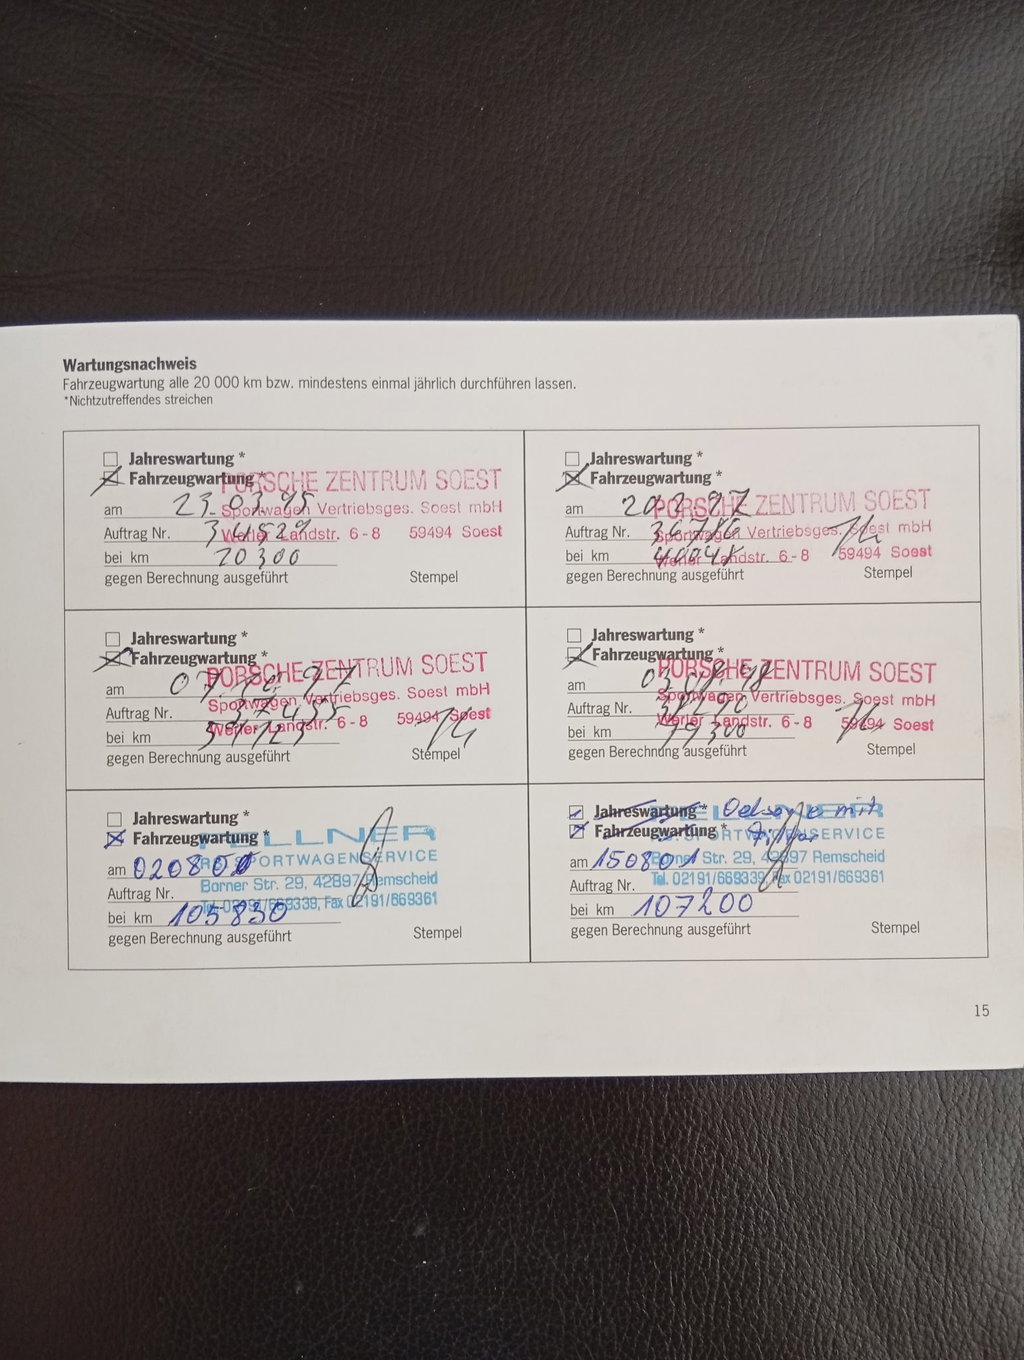 Wartungsnachweis
Fahrzeugwartung alle 20 000 km bzw. mindestens einmal jährlich durchführen lassen.
*Nichtzutreffendes streichen
Jahreswartung *
Fahrzeugwartung *
PORSCHE ZENTRUM SOEST
am 23.03.95
Sportwagen Vertriebsges. Soest mbH
Auftrag Nr. 34529
Werler Landstr. 6-8 59494 Soest
bei km 20300
gegen Berechnung ausgeführt Stempel
Jahreswartung *
Fahrzeugwartung *
PORSCHE ZENTRUM SOEST
am 20.2.97
Sportwagen Vertriebsges. Soest mbH
Auftrag Nr. 36786
Werler Landstr. 6-8 59494 Soest
bei km
gegen Berechnung ausgeführt Stempel
Jahreswartung *
Fahrzeugwartung *
PORSCHE ZENTRUM SOEST
am
Sportwagen Vertriebsges. Soest mbH
Auftrag Nr. 37435
Werler Landstr. 6-8 59494 Soest
bei km
gegen Berechnung ausgeführt Stempel
Jahreswartung *
Fahrzeugwartung *
PORSCHE ZENTRUM SOEST
am 03.08.98
Sportwagen Vertriebsges. Soest mbH
Auftrag Nr.
Werler Landstr. 6-8 59494 Soest
bei km 79300
gegen Berechnung ausgeführt Stempel
Jahreswartung *
Fahrzeugwartung *
FELLNER
am
SPORTWAGENSERVICE
Auftrag Nr.
Borner Str. 29, 42897 Remscheid
Tel. 02191/669339, Fax 02191/669361
bei km 105830
gegen Berechnung ausgeführt Stempel
Jahreswartung * mit
Fahrzeugwartung * Filter
FELLNER
SPORTWAGENSERVICE
am 150801
Borner Str. 29, 42897 Remscheid
Auftrag Nr.
Tel. 02191/669339, Fax 02191/669361
bei km 107200
gegen Berechnung ausgeführt Stempel
15